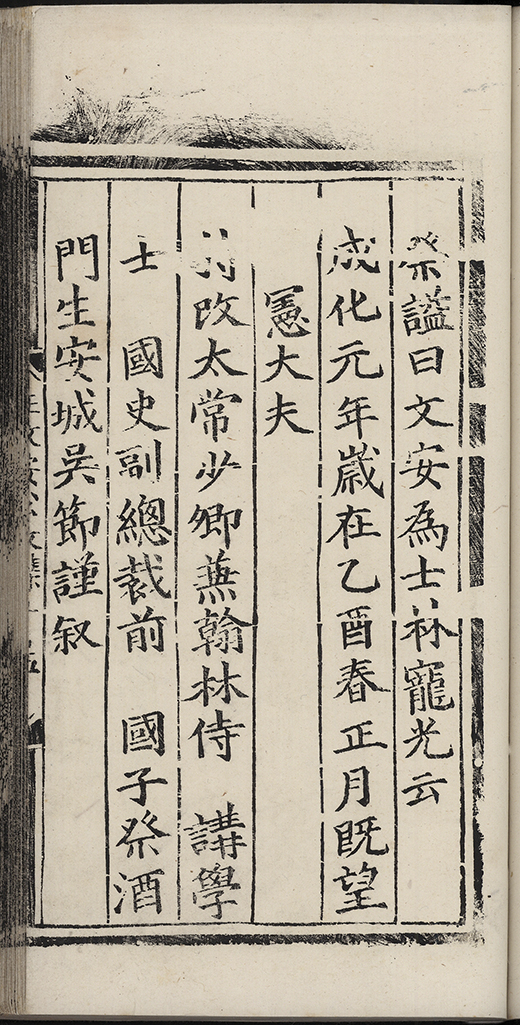 祭謚曰文安為士林寵光云
成化元年歲在乙酉春正月既望
憲大夫
改太常少卿兼翰林侍講學
士 國史副總裁前 國子祭酒
門生安城吳節謹叙